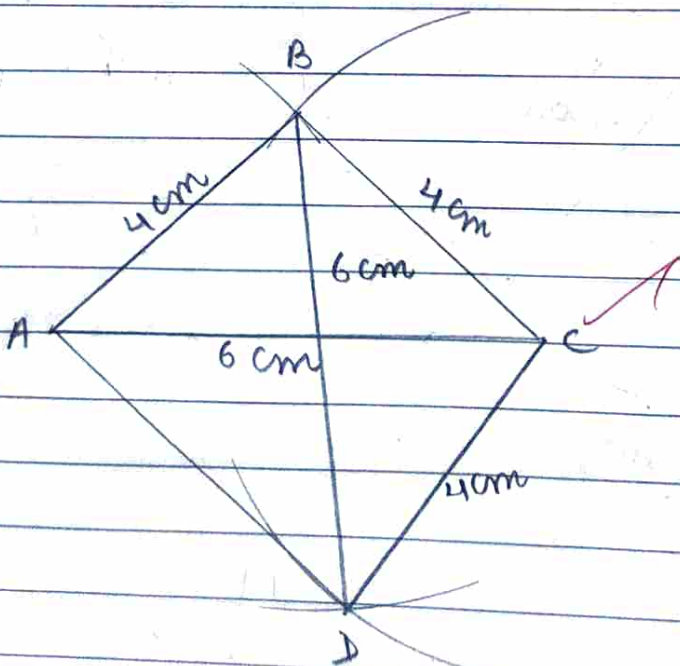 B
4 cm
4 cm
6 cm
A
6 cm
C
4 cm
D